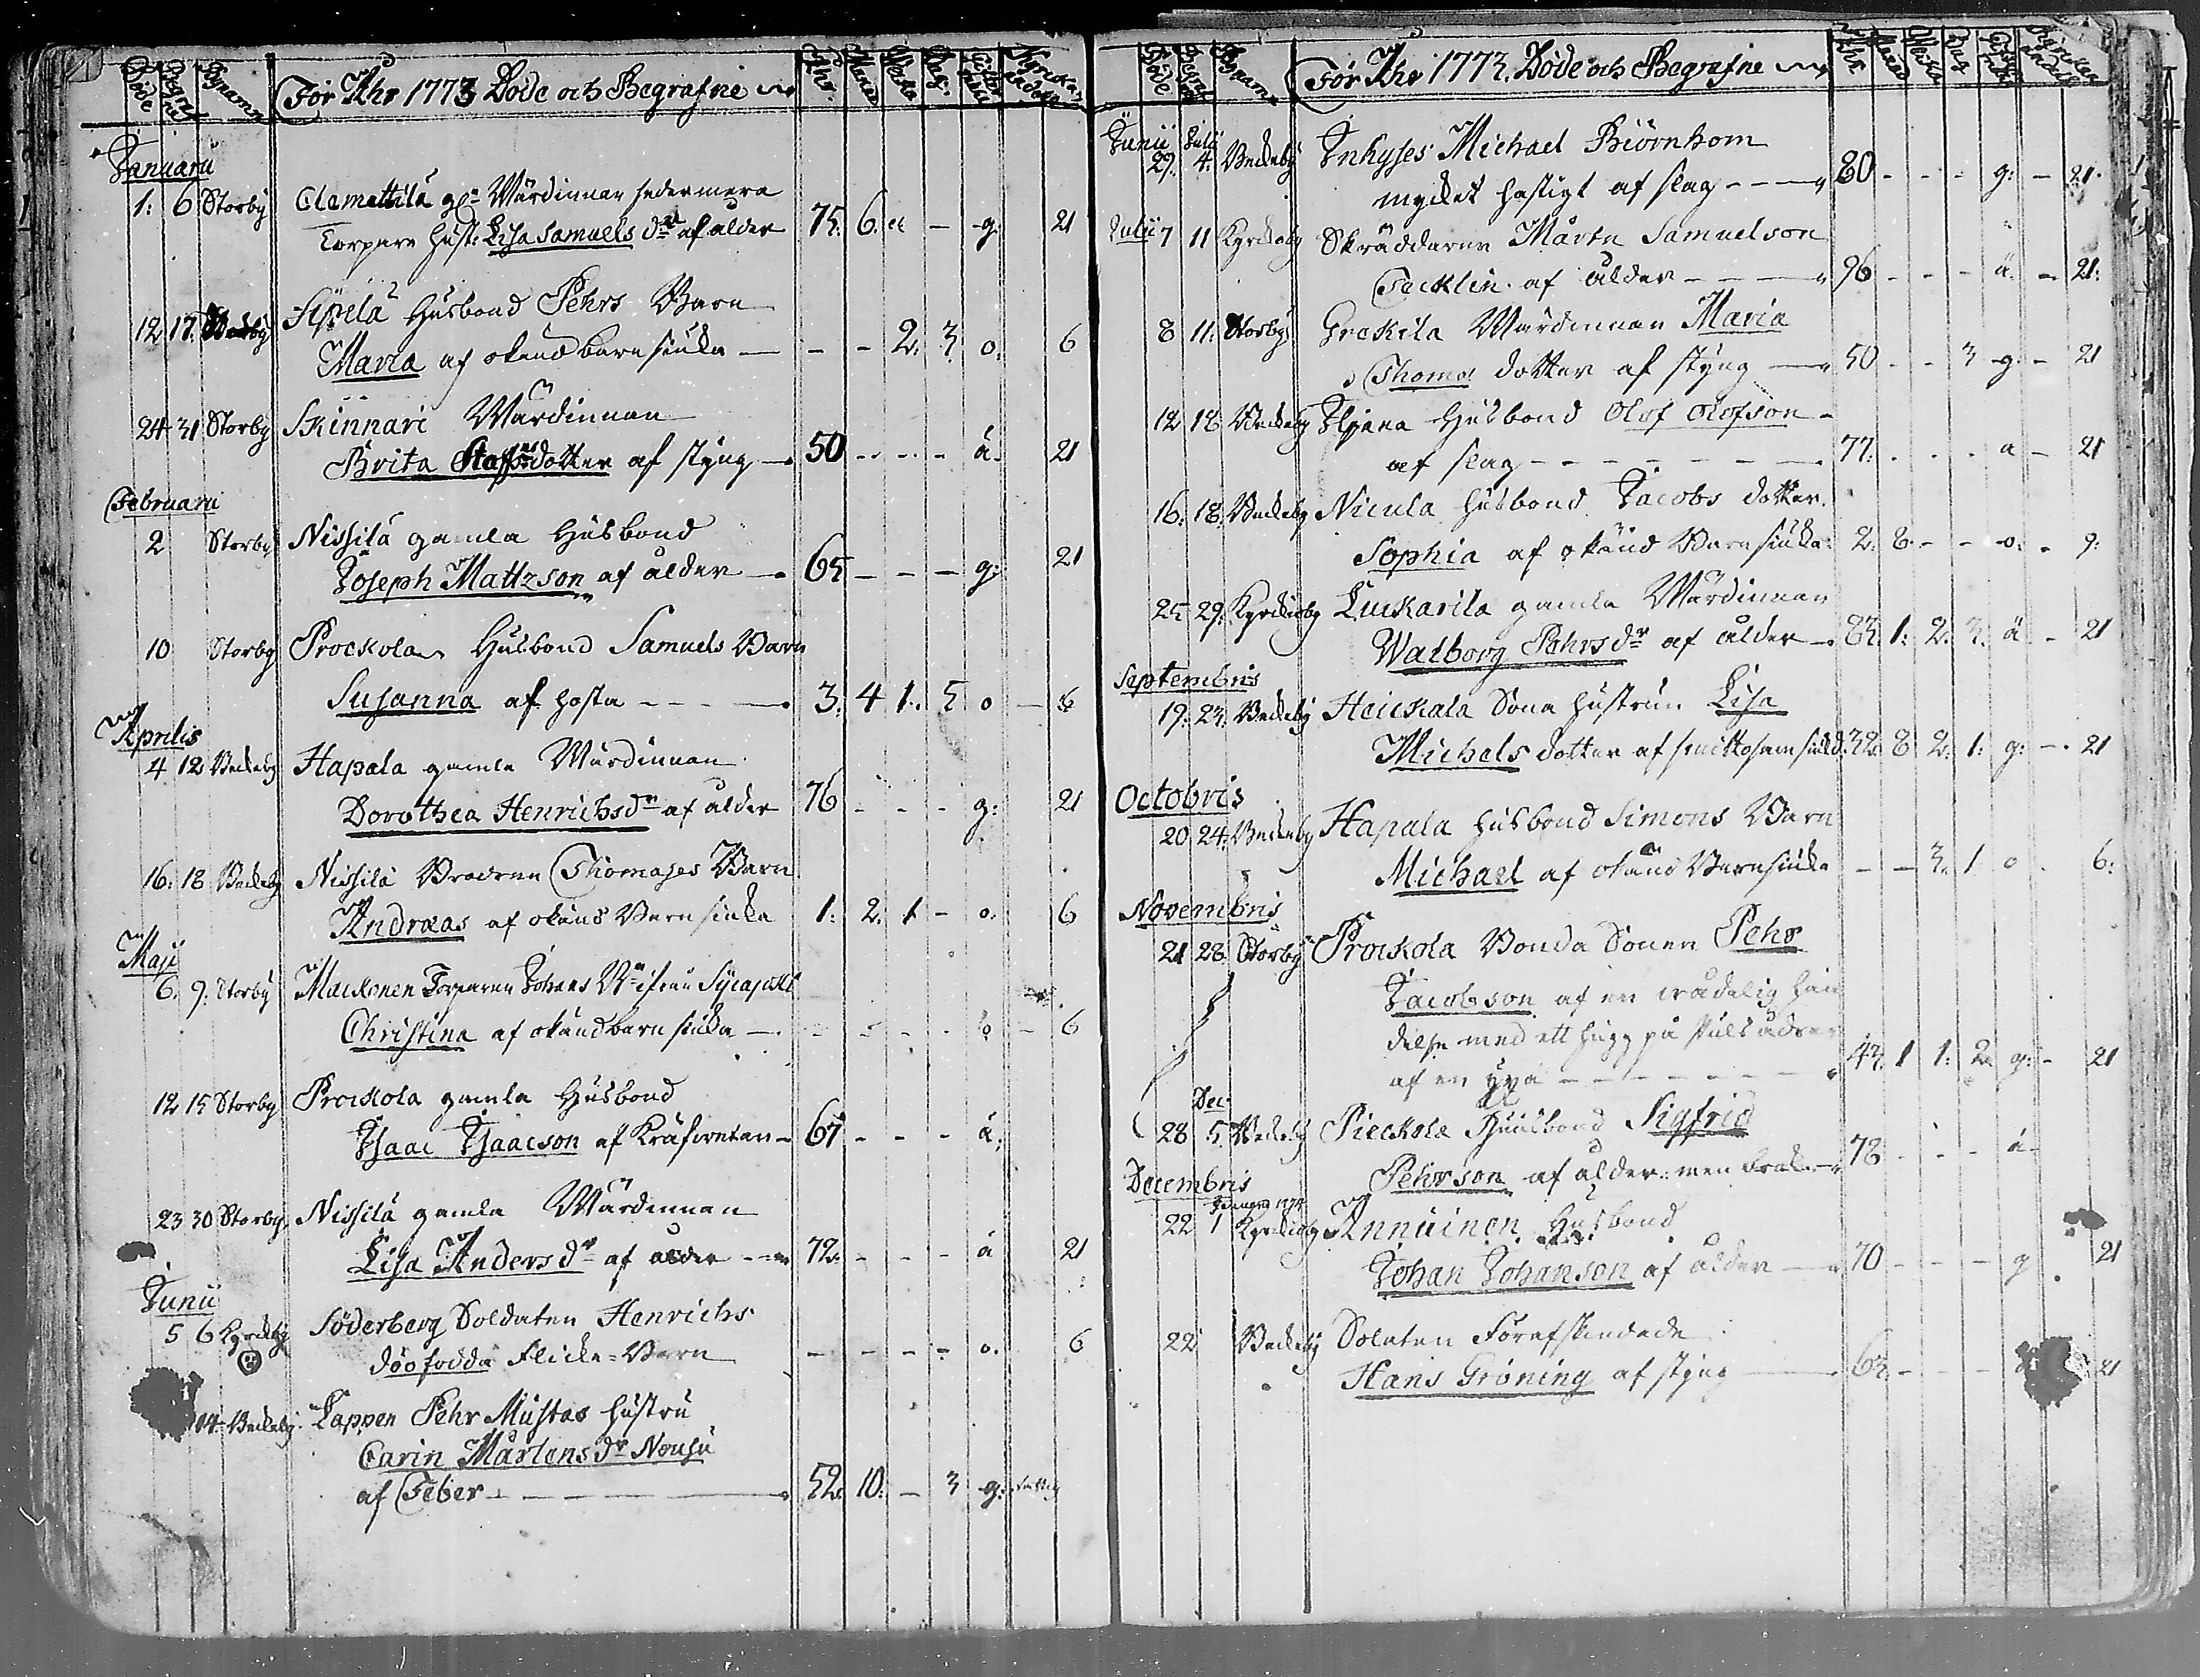 Döde Begrafne Bynamn För Åhr 1773 Döde och Begrafne Åhr. Månad Wecka Dag.
Januarii
1: 6 Storby Clamettilä gl: Wärdinnan sedermera
Torpare hust: Lisa Samuels dr af ålder 75. 6. - g: 21
12 17. Sipelä Husbond Pehrs Barn
Maria af okänd barnsiuka - - 2. 3. o. 6
24 31 Storby Skinnari Wärdinnan
Brita Staffsdotter af styng 50 - - - ä. 21
Februarii
2 Storby Nissilä gamla Husbond
Joseph Mattzson af ålder 65 - - - g: 21
10 Storby Prockola Husbond Samuels Barn
Susanna af hosta - - - 3. 4 1. 5 o - 6
Aprilis
4 12 Beckeby Hapala gamla Wärdinnan
Dorothea Henrichsdr af ålder 76 - - - g: 21
16. 18 Beckeby Nissilä Brodren Thomases Barn
Andreas af okänd Barnsiuka 1. 2. 1 - o. 6
Maji
6. 9: Storby Mackonen Torparen Johans
Christina af okänd barnsiuka - - - - o - 6
12 15 Storby Prockola gamla Husbond
Isaac Isaacson af Kräfwetan 67 - - - ä.
23 30 Storby Nissilä gamla Wärdinnan
Lisa Anders dr af ålder 72. - - - ä 21
Junii
5 6 Kyrckoby Söderberg Soldaten Henrichs
dödfödda Flicke-Barn - - - - o. 6
14 Beckeby Lappen Pehr Mustas hustru
Carin Mårtens dr Nousu
af Feber 52. 10. - 3 g: fattig
Döde Begraf Bynamn För Åhr 1773. Döde och Begrafne Åhr Månad Wecka Dag Kyrckans andel
Junii Julii
29. 4. Beckeby Inhyses Michael Biörnhom
mycket hastigt af slag 80 - - - g: - 21.
Julii 7 11 Kyrckoby Skräddaren Mårten Samuelson
Tecklin af ålder 96 - - - ä. - 21:
8 11: Storby Grekilä Wärdinnan Maria
Thomas dotter af styng 50 - - 3 g: - 21
12 18 Beckeby Husbond Olof Olofson
af slag 77. - - - a - 21
16. 18. Beckeby Nicula husbond Jacobs dotter
Sophia af okänd Barnsiuka 2. 8. - - o. - 9:
25 29. Kyrckoby Luckarila gamla Wärdinnan
Walborg Pehrsdr af ålder 83. 1: 2. 3. ä - 21
Septembris
19. 23. Beckeby Heickala Sona hustrun Lisa
Michels dotter af smittosam siukd. 32. 8 2. 1. g: - 21
Octobris
20 24. Beckeby Hapala husbond Simons Barn
Michael af okänd Barnsiuka - - 3. 1 o . 6:
Novembris
21 28 Storby Prockola Bonda Sonen Pehr
Jacobson af en wådelig hän
delse med ett hugg på pulsådren
af en yxa 43. 1 1: 2. g: - 21
Dec:
28 5 Beckeby Pieckola Husbond Sigfrid
Pehrson af ålder: men 78 - - - ä.
Decembris
22 1 Kyrckoby Annuinen Husbond
Johan Johanson af ålder 70 - - - g . 21
22 Beckeby Solaten Förafskedade
Hans Gröning af styng 63. - - - 21